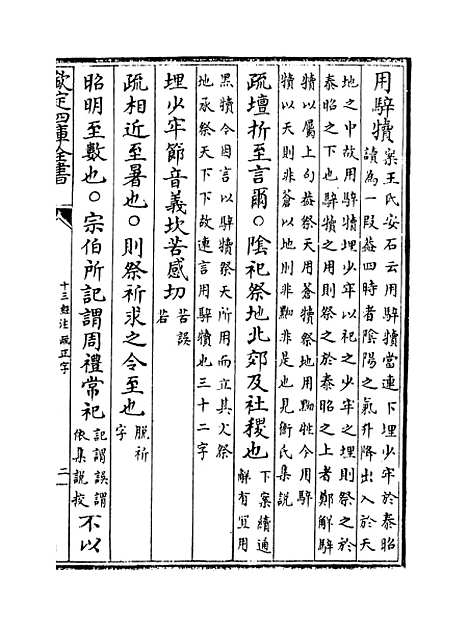 用騂犢案王氏安石云用騂犢當連下埋少牢於泰昭
讀為一段葢四時者陰陽之氣升降出入於天
地之中故用騂犢埋少牢以祀之少牢之埋則祭之於
泰昭之下也騂犢之用則祭之於泰昭之上者鄭解騂
犢以屬上句葢祭天用蒼犢祭地用黝牲今用騂
犢以天則非蒼以地則非黝非是也見衛氏集說
疏壇折至言爾○隂祀祭地北郊及社稷也下案續通
解有宜用
黑犢今因言以騂犢祭天所用而立其文祭
地承祭天下下故連言用騂犢也三十二字
埋少牢節音義坎苦感切苦誤
若
疏相近至暑也○則祭祈求之令至也脫祈
字
昭明至數也○宗伯所記謂周禮常祀記謂誤謂
依集說校不以
欽定四庫全書
十三經注疏正字
二一